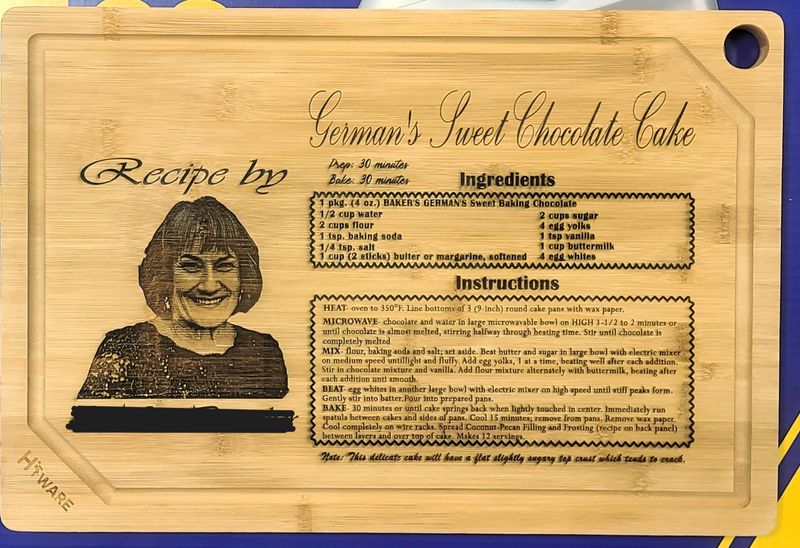 German's Sweet Chocolate Cake
Recipe by
Prep: 30 minutes
Bake: 30 minutes
Ingredients
1 pkg. (4 oz.) BAKER'S GERMAN'S Sweet Baking Chocolate
1/2 cup water
2 cups flour
1 tsp. baking soda
1/4 tsp. salt
1 cup (2 sticks) butter or margarine, softened
2 cups sugar
4 egg yolks
1 tsp vanilla
1 cup buttermilk
4 egg whites
Instructions
HEAT- oven to 350°F. Line bottoms of 3 (9-inch) round cake pans with wax paper.
MICROWAVE- chocolate and water in large microwavable bowl on HIGH 1-1/2 to 2 minutes or
until chocolate is almost melted, stirring halfway through heating time. Stir until chocolate is
completely melted
MIX- flour, baking soda and salt; set aside. Beat butter and sugar in large bowl with electric mixer
on medium speed untillight and fluffy. Add egg yolks, 1 at a time, beating well after each addition.
Stir in chocolate mixture and vanilla. Add flour mixture alternately with buttermilk, beating after
each addition unti smooth.
BEAT- egg whites in another large bowl with electric mixer on high speed until stiff peaks form.
Gently stir into batter.Pour into prepared pans.
BAKE- 30 minutes or until cake springs back when lightly touched in center. Immediately run
spatula between cakes and sides of pans. Cool 15 minutes; remove from pans. Remove wax paper.
Cool completely on wire racks. Spread Coconut-Pecan Filling and Frosting (recipe on back panel)
between layers and over top of cake. Makes 12 servings.
Note: This delicate cake will have a flat slightly sugary top crust which tends to crack.
HIWARE